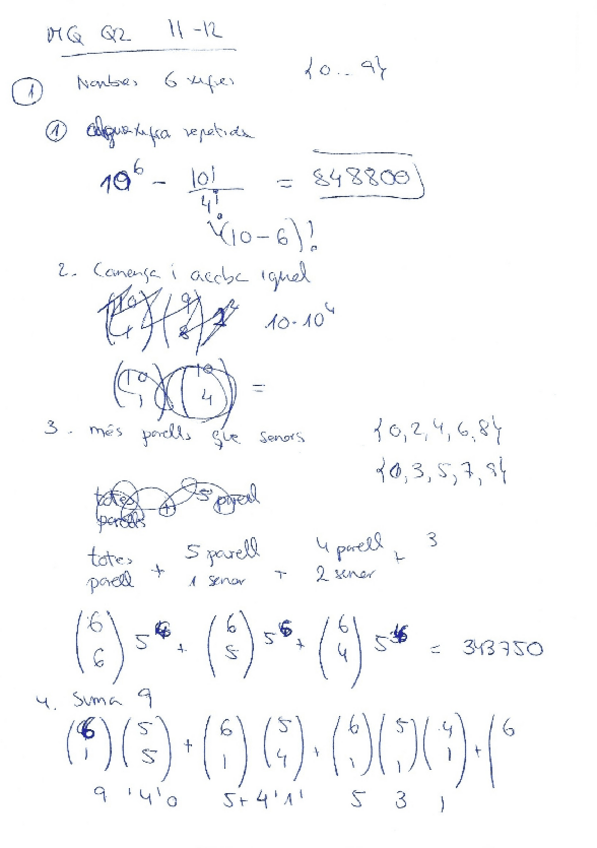 MQ Q2 11-12
1 Nombres 6 xifres {0..9}
1 alguna xifra repetida
10^6 - 10!/4! = 848800
(10-6)!
2. Comença i acaba igual
10·10^4
(10 1) (10 4) =
3. més parells que senars {0,2,4,6,8}
{1,3,5,7,9}
totes parells + 5 parell
totes parell + 5 parell 1 senar + 4 parell 2 senar + 3
(6 6) 5^6 + (6 5) 5^6 + (6 4) 5^6 = 343750
4. Suma 9
(6 1) (5 5) + (6 1) (5 4) + (6 1) (5 1) (4 1) + (6
9 '4' 0 5+4'1' 5 3 1